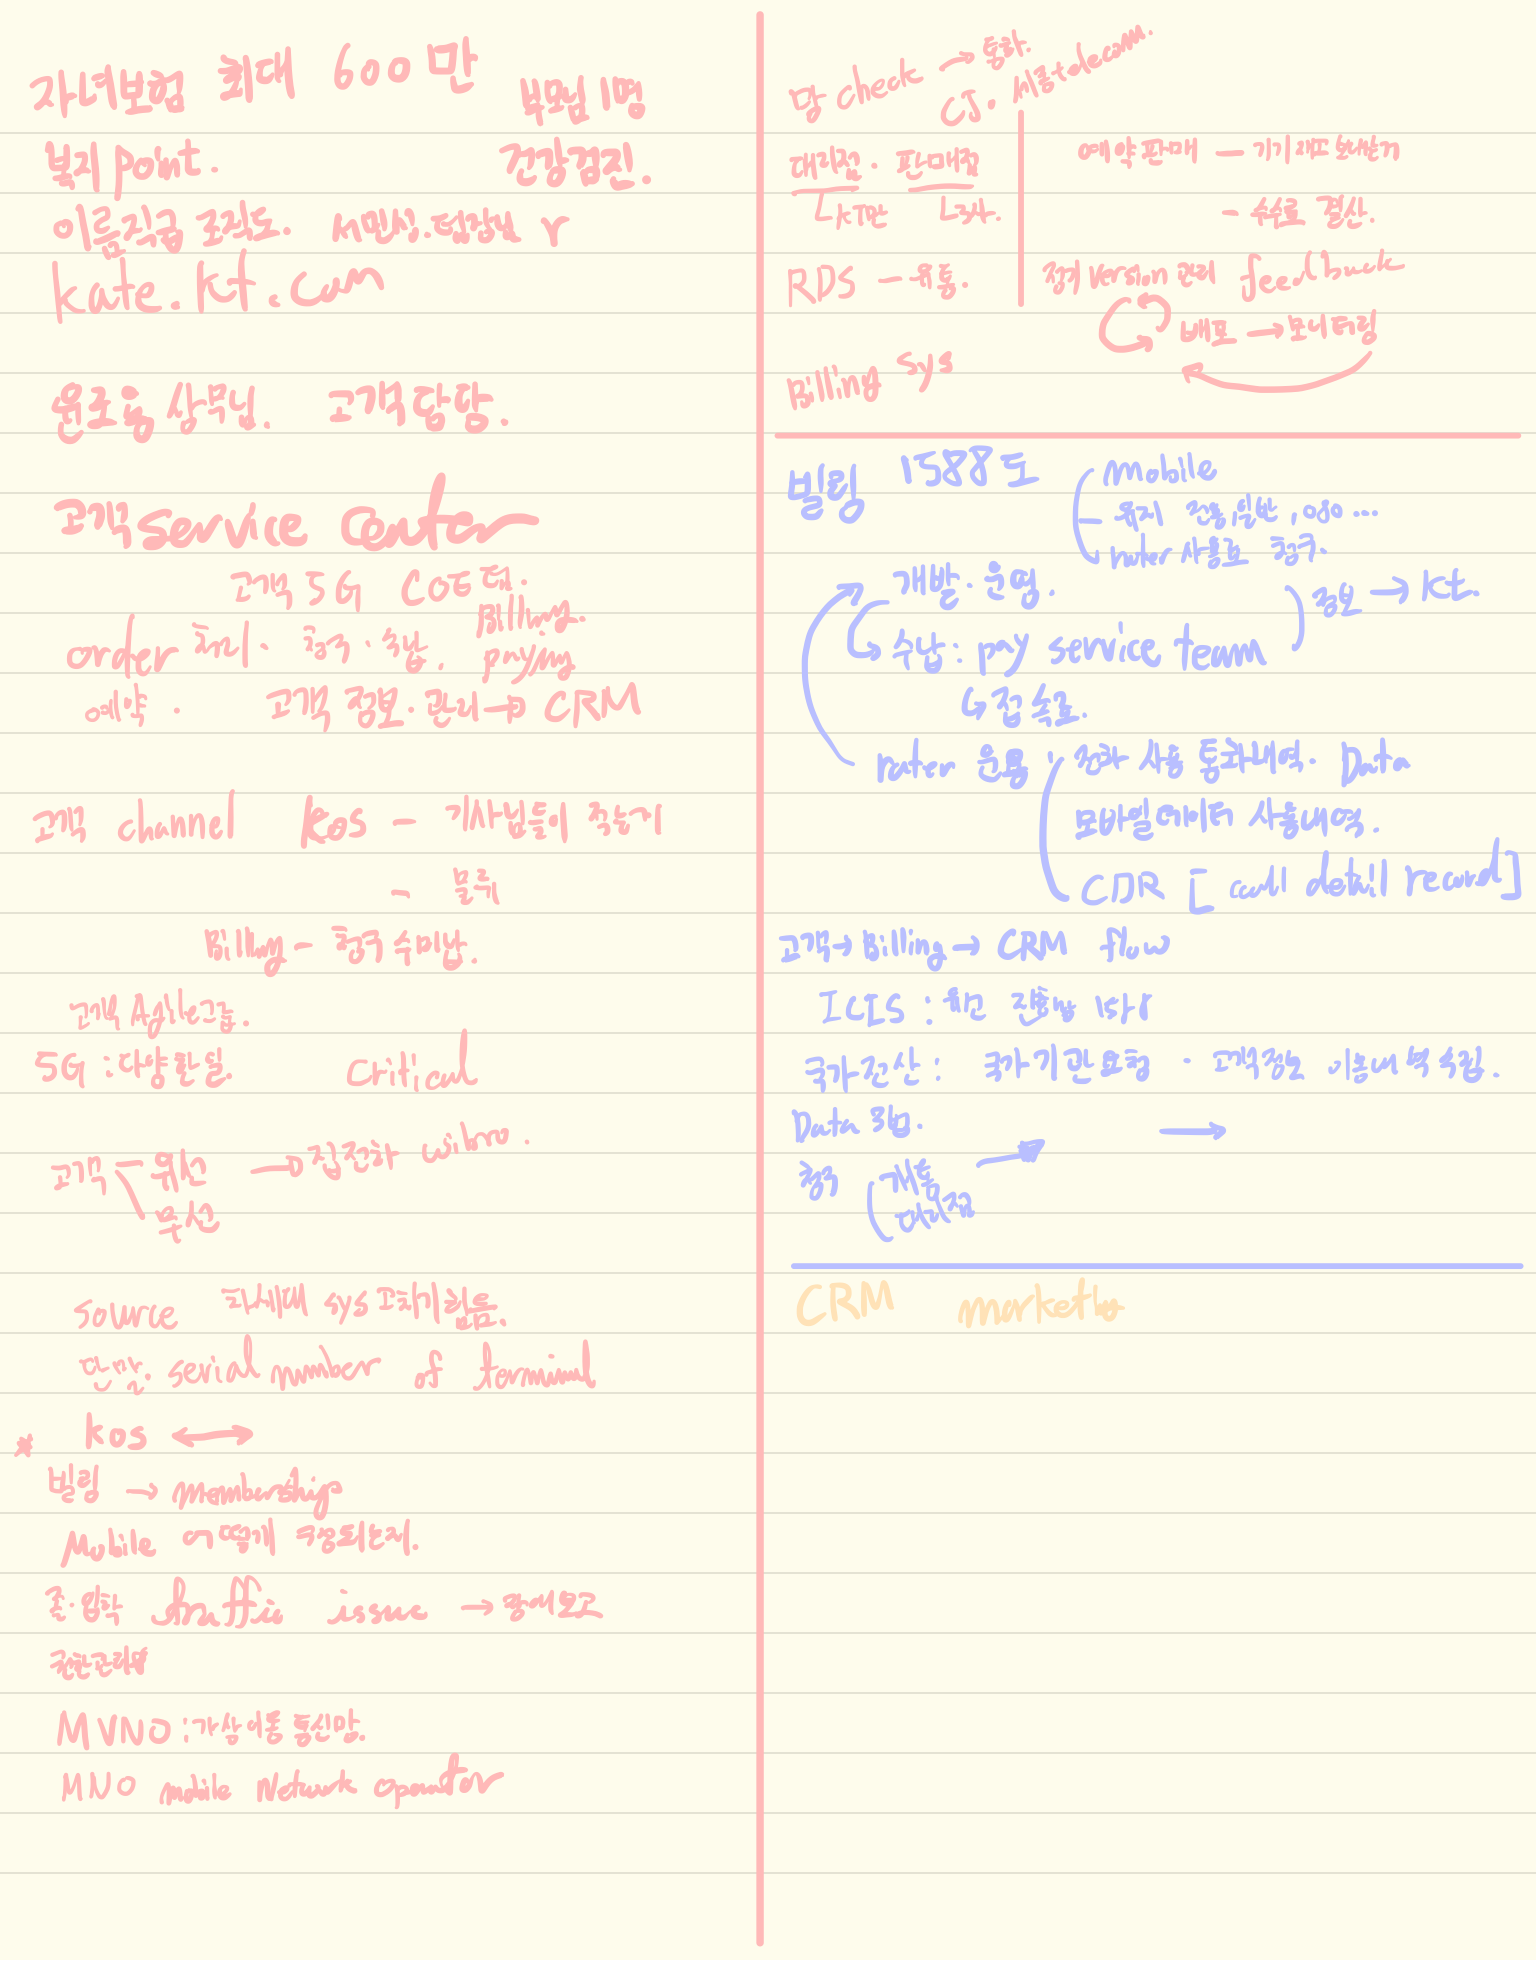 자녀보험 최대 600만 부모님 1명
복지 point. 건강검진.
이름직급 조직도. 서민성.팀장님
kate.kt.com
윤로용 상무님. 고객담당.
고객 service center
고객 5G COE팀.
order 처리. 청구.수납. Billing. paying
예약. 고객 정보.관리 → CRM
고객 channel kos - 기사님들이 찍는거
- 물류
Billing - 청구 수미납.
고객 Agile그룹.
5G : 다양한일. Critical
고객 - 유선 → 집전화 wibro.
무선
source 차세대 sys
단말. serial number of terminal
* kos ↔
빌링 → membership
Mobile 어떻게 구성되는지.
졸.입학 traffic issue → 장애보고
권한관리
MVNO : 가상이동 통신망.
MNO mobile Network operator
망 check → 통화.
CJ. 세종telecom.
대리점. 판매점
ㄴKT만 ㄴ3사.
RDS - 유통.
Billing sys
예약판매 - 기기
- 수수료 결산.
정기 version 관리 feedback
배포 → 모니터링
빌링 1588도 mobile
- 유지 전용,일반,080...
rater 사용료 청구.
개발.운영. 정보 → kt.
수납 : pay service team
접속료.
rater 운용 : 전화 사용 통화내역. Data
모바일데이터 사용내역.
CDR [call detail record]
고객→Billing→CRM flow
ICIS : 유선
국가전산 : 국가기관요청 . 고객정보 이용내역
Data 3법. →
청구 개통 →
대리점
CRM marketing